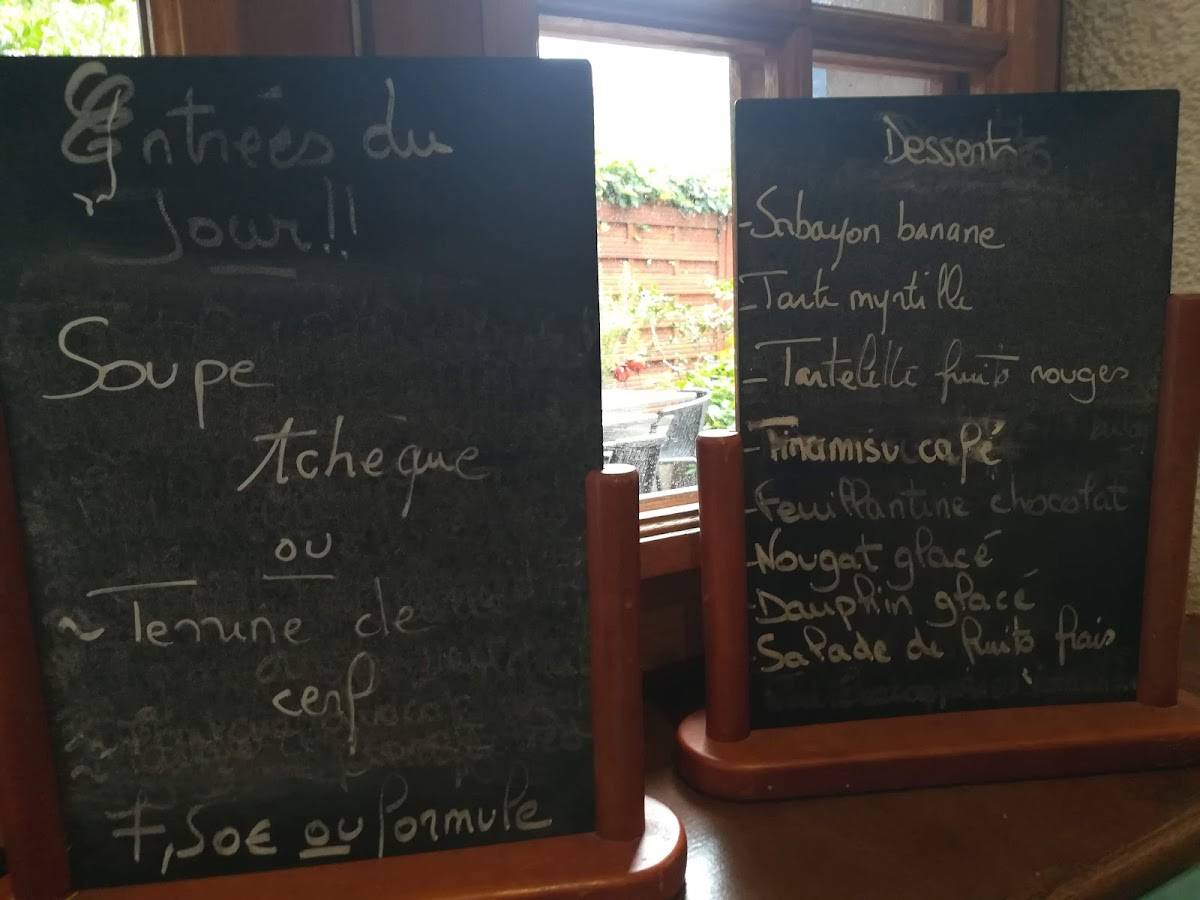 Entrées du
Jour!!
Soupe
tchèque
ou
~ Terrine de
cerf
7,50€ ou formule
Desserts
- Sabayon banane
- Tarte myrtille
- Tartelette fruits rouges
- Tiramisu café
- Feuillantine chocolat
- Nougat glacé
- Dauphin glacé
- Salade de fruits frais